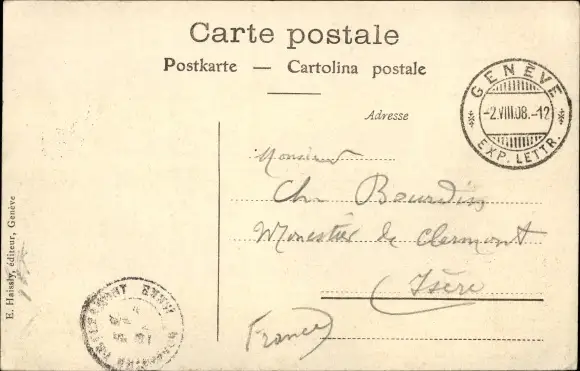 Carte postale
Postkarte — Cartolina postale
Adresse
GENÈVE
-2.VIII.08.-12
EXP. LETTR.
Monsieur
Ch Bourdin
Monestier de Clermont
Isère
(France)
E. Haissly, éditeur, Genève